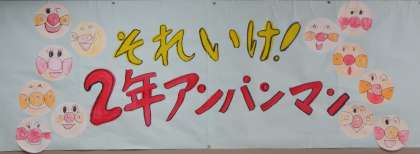 それいけ!
2年アンパンマン